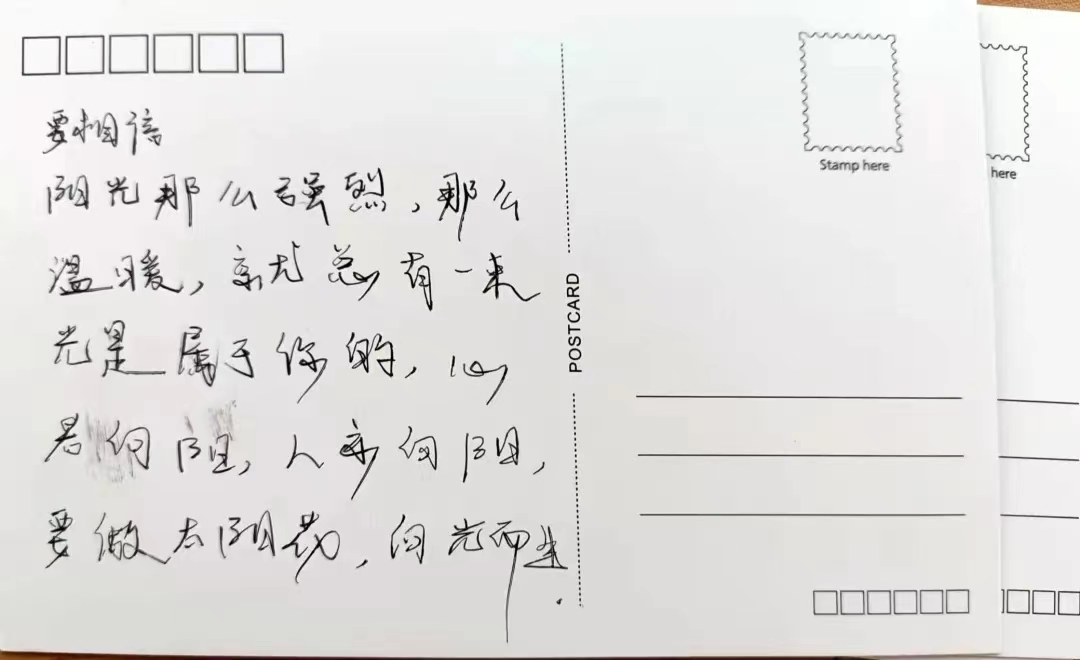 要相信
阳光那么强烈，那么
温暖，就总有一束
光是属于你的，心
若向阳，人亦向阳，
要做太阳花，向光而生
.
POSTCARD
Stamp here
here